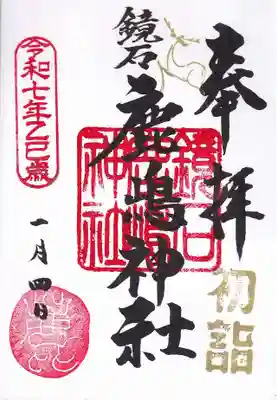 奉拝
初詣
鏡石
鹿嶋神社
鏡石
鹿嶋
神社
令和七年乙巳歳
一月四日